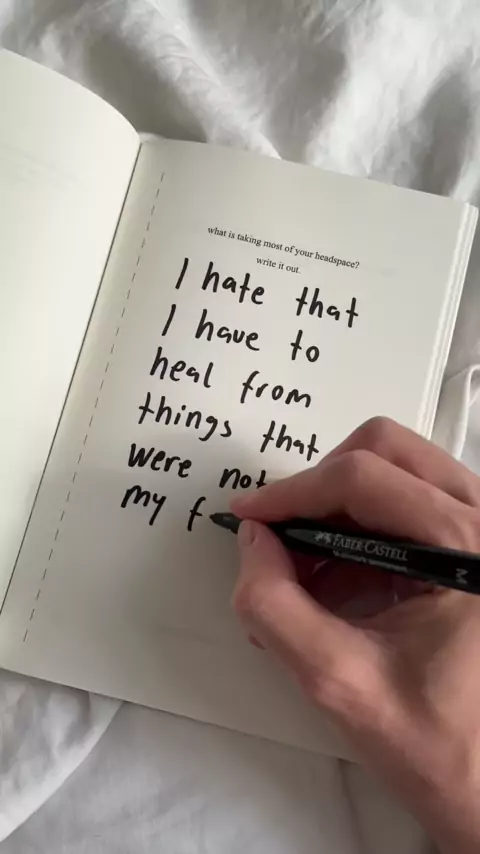 what is taking most of your headspace?
write it out.
I hate that
I have to
heal from
things that
were not
my f
FABER-CASTELL
M